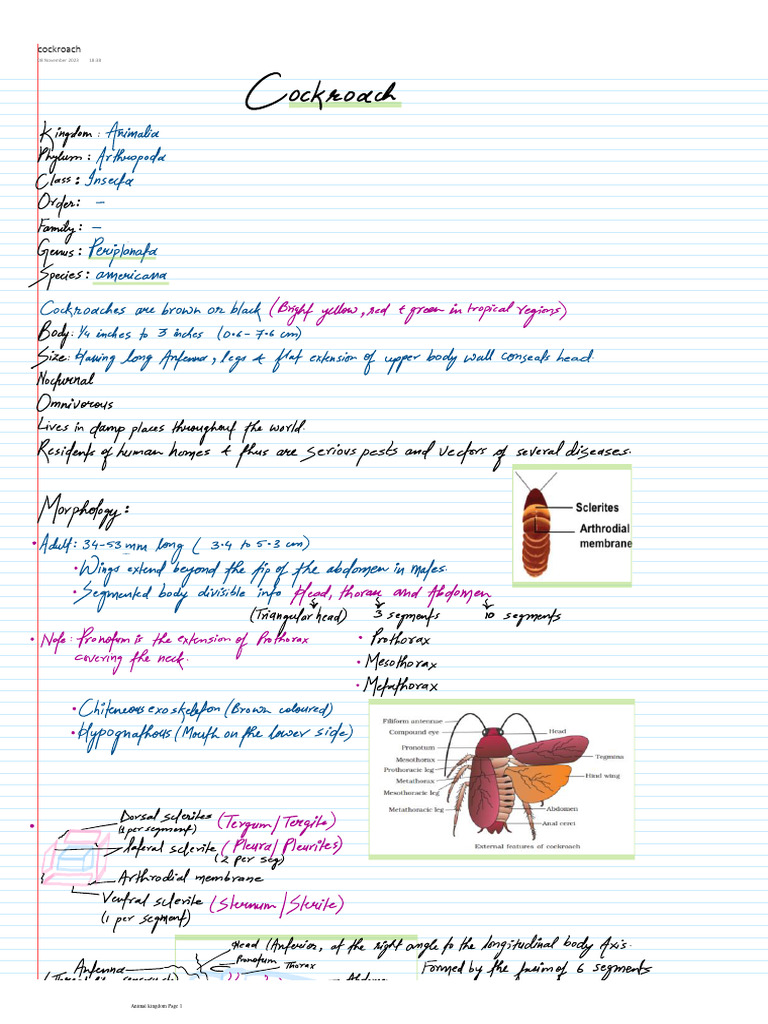 cockroach
18:38
Cockroach
Kingdom: Animalia
Phylum: Arthropoda
Class: Insecta
Order: -
Family: -
Genus: Periplanata
Species: americana
Cockroaches are brown or black (Bright yellow, red & green in tropical regions)
Body: 1/4 inches to 3 inches (0.6- 7.6 cm)
Size: Having long Antenna, legs & flat extension of upper body wall conseals head.
Nocturnal
Omnivorous
Lives in damp places throughout the world.
Residents of human homes & thus are serious pests and vectors of several diseases.
Sclerites
Arthrodial
membrane
Morphology:
• Adult: 34-53 mm long ( 3.4 to 5.3 cm)
• Wings extend beyond the tip of the abdomen in males.
• Segmented body divisible into Head, thorax and Abdomen
(Triangular head) 3 segments 10 segments
• Note: Pronotum is the extension of Prothorax
covering the neck.
• Prothorax
• Mesothorax
• Metathorax
• Chiteneous exoskeleton (Brown coloured)
• Hypognathous (Mouth on the lower side)
Filiform antennae
Compound eye
Head
Pronotum
Mesothorax
Tegmina
Prothoracic leg
Hind wing
Metathorax
Mesothoracic leg
Metathoracic leg
Abdomen
Anal cerci
External features of cockroach
• Dorsal sclerites (Tergum/Tergite)
(1 per segment)
lateral sclerite (Pleura/Pleurites)
(2 per seg)
Arthrodial membrane
Ventral sclerite (Sternum/Sterite)
(1 per segment)
Head (Anterior, at the right angle to the longitudinal body Axis.
Pronotum
Antenna
Thorax
Formed by the fusion of 6 segments
Animal Kingdom Page 1